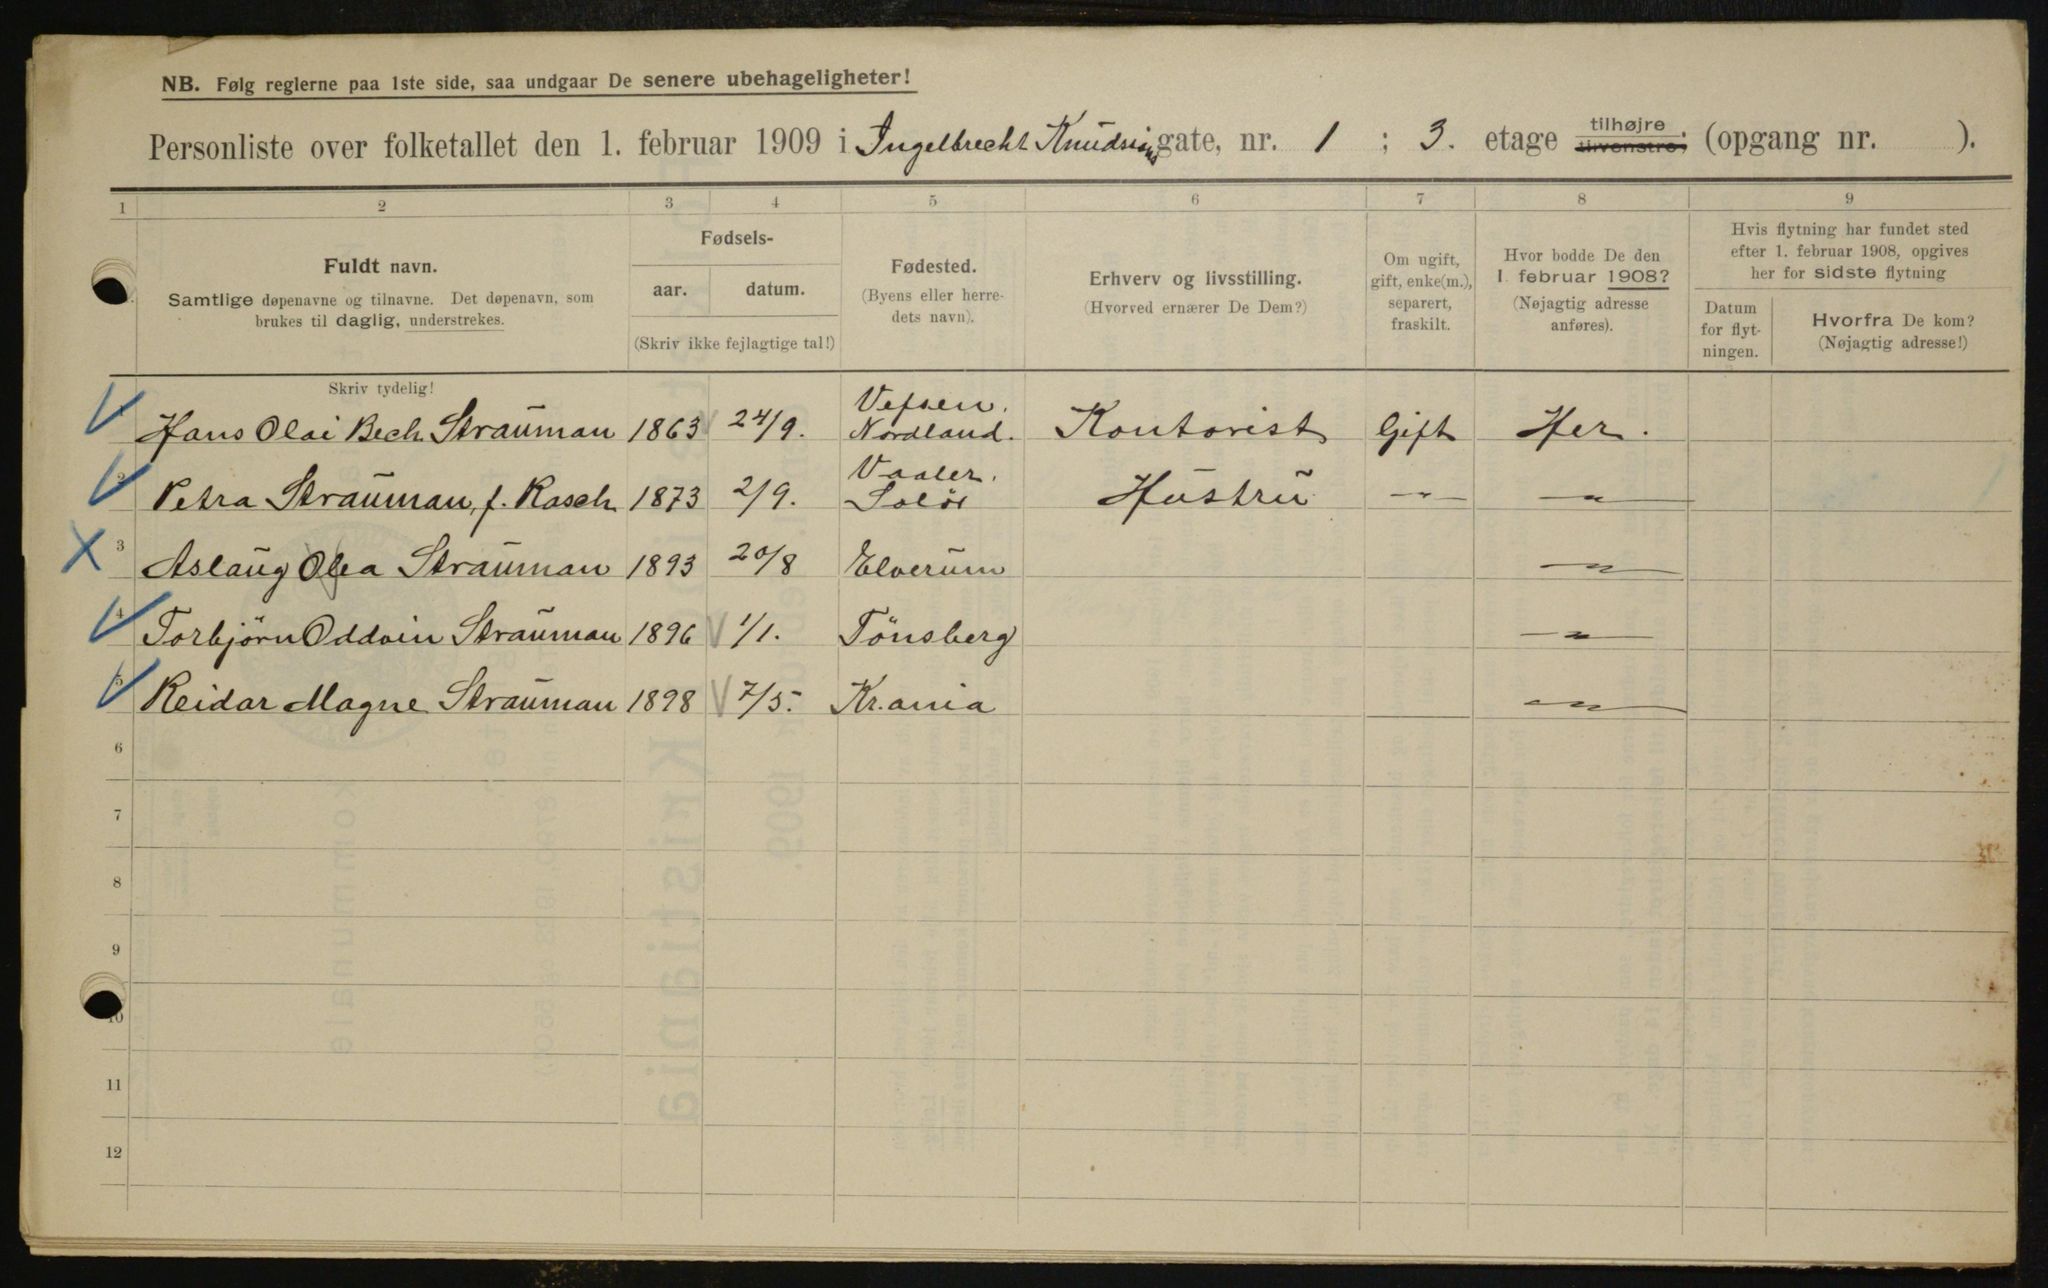 NB. Følg reglerne paa 1ste side, saa undgaar De senere ubehageligheter!
Personliste over folketallet den 1. februar 1909 i Ingelbrecht Knudsøns gate, nr. 1 ; 3. etage tilhøjre, tilvenstre, (opgang nr. ).
1 2 3 4 5 6 7 8 9
Fuldt navn.
Samtlige døpenavne og tilnavne. Det døpenavn, som
brukes til daglig, understrekes.
Fødsels-
aar. datum.
(Skriv ikke fejlagtige tal!)
Fødested.
(Byens eller herre-
dets navn).
Erhverv og livsstilling.
(Hvorved ernærer De Dem?)
Om ugift,
gift, enke(m.),
separert,
fraskilt.
Hvor bodde De den
1. februar 1908?
(Nøjagtig adresse
anføres).
Hvis flytning har fundet sted
efter 1. februar 1908, opgives
her for sidste flytning
Datum
for flyt-
ningen.
Hvorfra De kom?
(Nøjagtig adresse!)
Skriv tydelig!
Hans Olai Bech Strauman 1863 24/9. Vefsen. Nordland. Kontorist Gift Her.
2 Petra Strauman, f. Rasch 1873 2/9. Vaaler. Solör Hustru -"- -"-
3 Aslaug Olea Strauman 1893 20/8 Elverum -"-
4 Torbjörn Oddvin Strauman 1896 1/1. Tönsberg -"-
5 Reidar Magne Strauman 1898 7/5. Kr.ania -"-
6
7
8
9
10
11
12